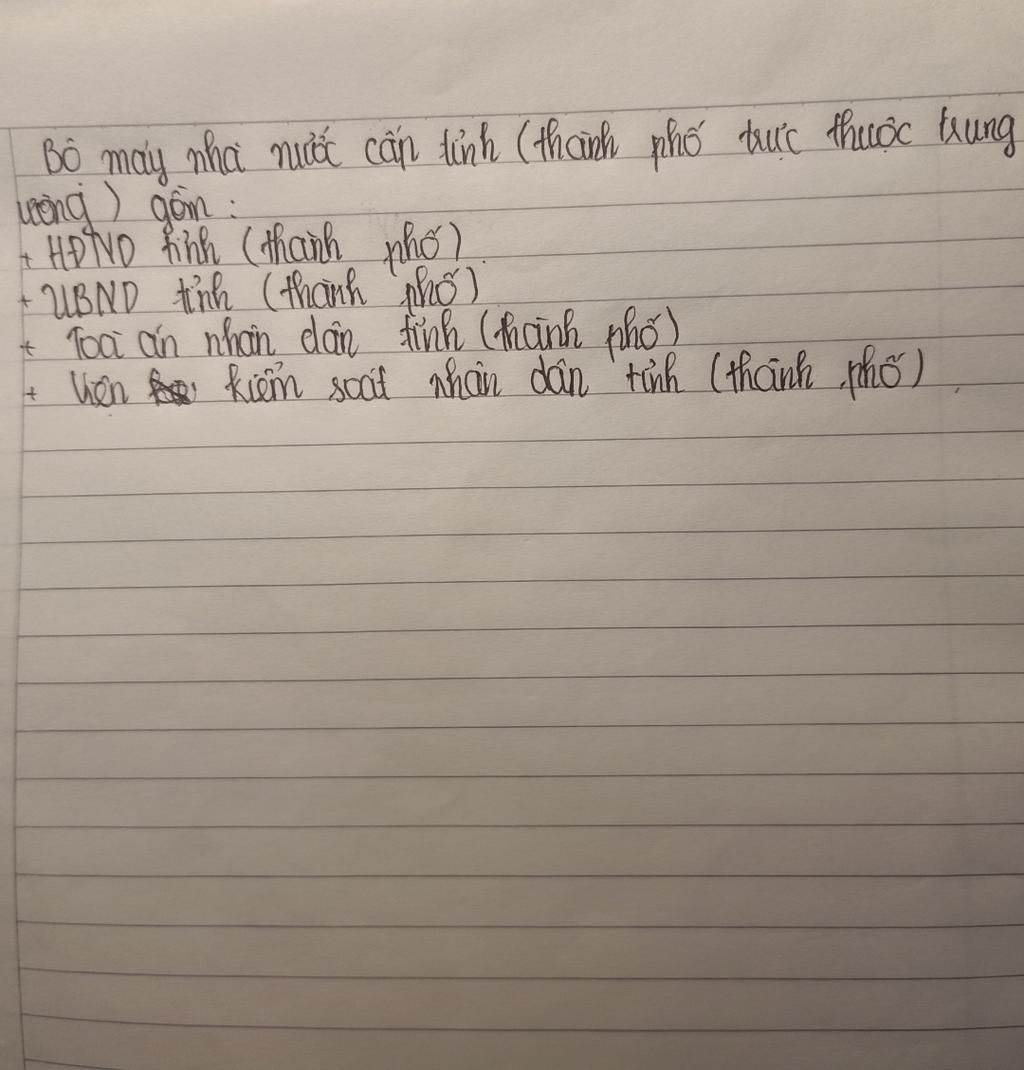 Bộ máy nhà nước cấp tỉnh (thành phố trực thuộc trung
ương) gồm :
+ HĐND tỉnh (thành phố).
+ UBND tỉnh (thành phố)
+ Toà án nhân dân tỉnh (thành phố)
+ Viện kiểm soát nhân dân tỉnh (thành phố).